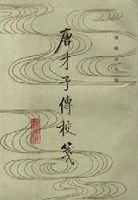 唐才子傳校箋